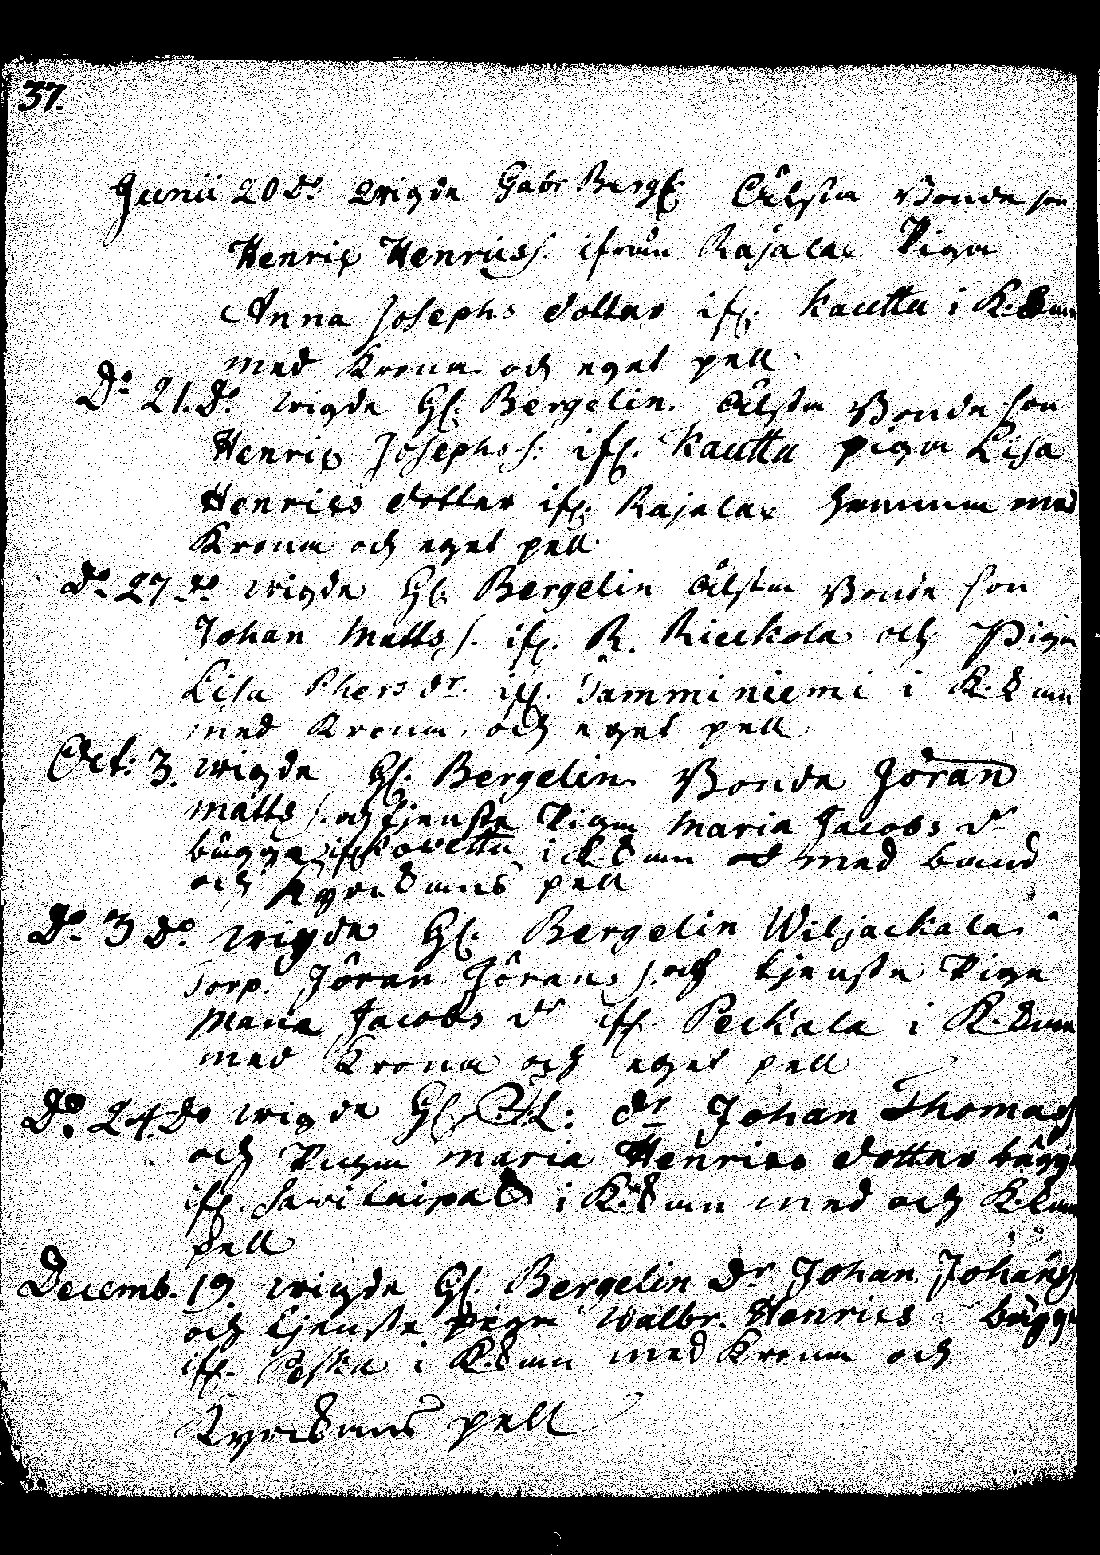 37.
Junii 20 do. wigde Gabr Berg: Älsta Bonde son
Henric Henricss. ifrån Rajala Piga
Anna Josephs dotter ifr. Kauttu i K:bem
med Krona och eget pell
Do 21. do. wigde Hl: Bergelin. älsta Bonde son
Henric Josephss: ifr. Kauttu piga Lisa
Henrics dotter ifr. Rajala hemma med
Krona och eget pell
do. 27 do wigde Hl: Bergelin älsta Bonde son
Johan Matts s. ifr. R. Rieckola och Piga
Lisa Phers dr. ifr. Samminiemi i K.
med Krona och eget pell
Oct: 3. wigde Hl: Bergelin Bonde Jöran
Matts s. och tjenste Piga Maria Jacobs dr
bägge ifr i med band
och pell
Do. 3 do. wigde Hl: Bergelin Wiljackala
Sorp. Jöran Jörans s. och tjenste Piga
Maria Jacobs dr ifr. Peckala i K.
med Krona och eget pell
Do. 24. do wigde Hl: dr Johan Thomas
och Pigan Maria Henrics dotter bägge
ifr. Sawilaipal i K: med och K
pell
Decemb. 19. wigde Hl: Bergelin Dr Johan Johans
och tjenste Piga Walbr. Henrics bägge
ifr. i K. med Krona och
pell